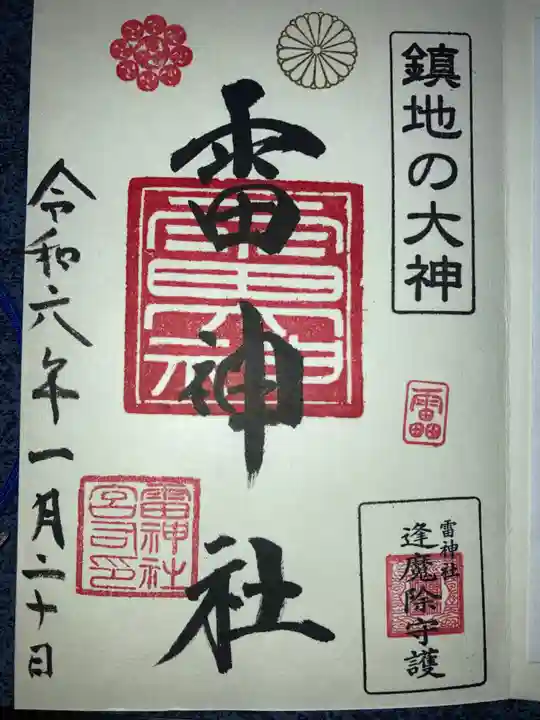 鎮地の大神
雷
雷神社
逢魔除守護
雷神社
令和六年一月二十日
雷神社
宮司印